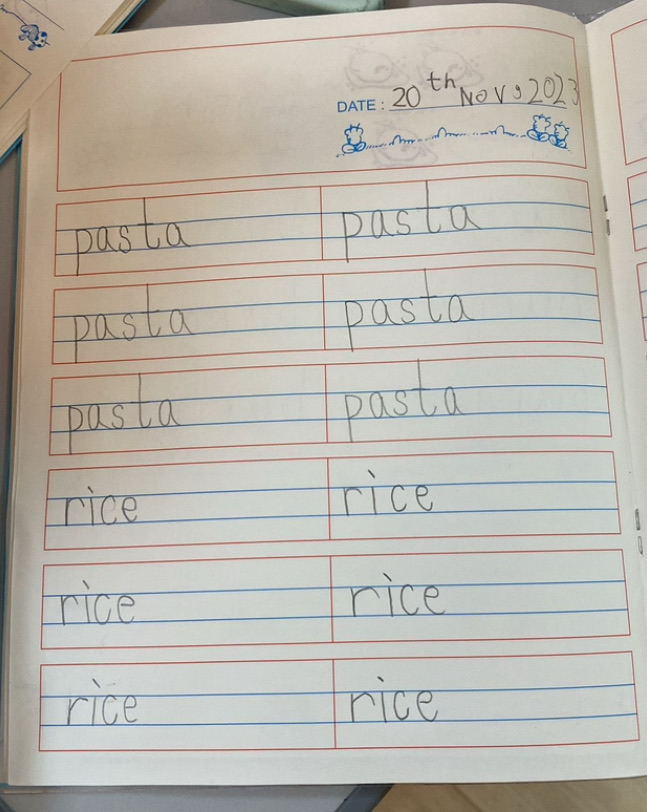 DATE : 20th Nov, 2023
pasta pasta
pasta pasta
pasta pasta
rice rice
rice rice
rice rice